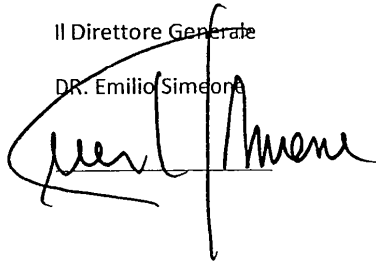 Il Direttore Generale
DR. Emilio Simeone